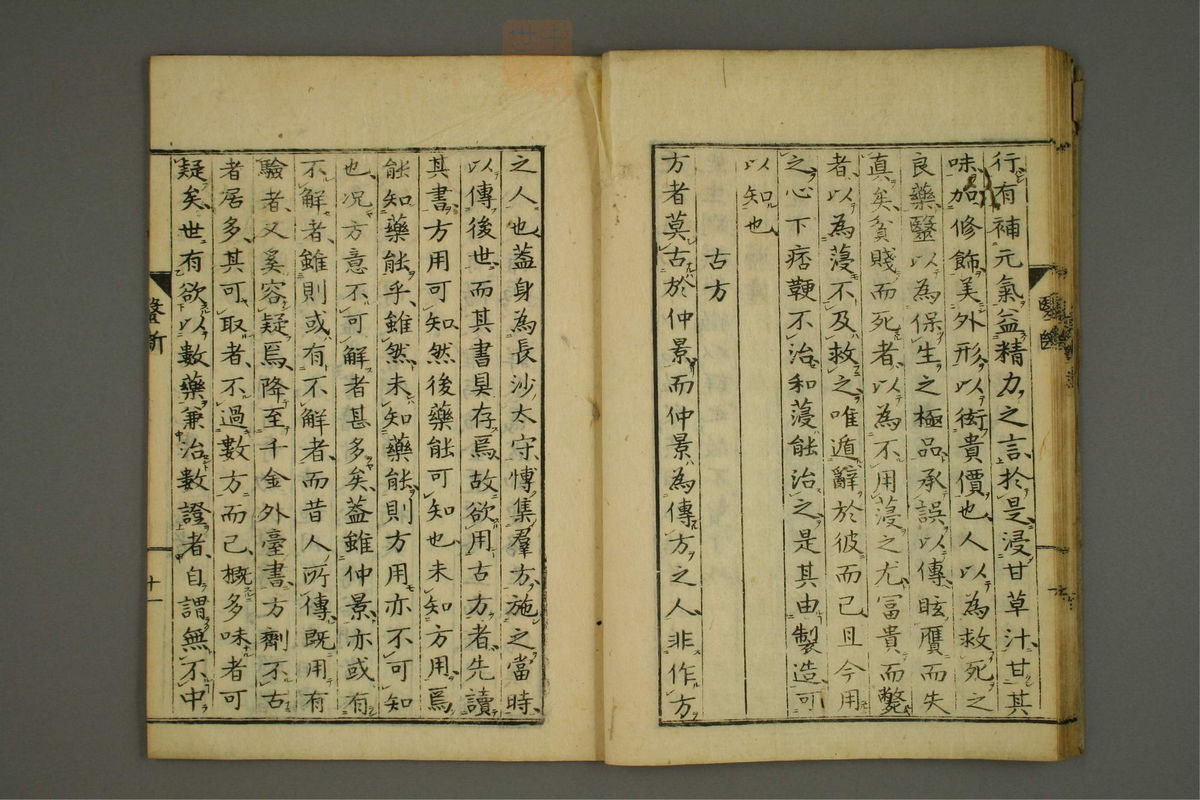 行有補元氣益精力之言於是浸甘草汁甘其
味加修飾美外形以衒貴價也人以為救死之
良藥醫以為保生之極品承誤以傳眩贋而失
真矣貧賤而死者以為不用蓡之尤冨貴而斃
者以為蓡不及救之唯遁辭於彼而已且今用
之心下痞鞕不治和蓡能治之是其由製造可
以知也
古方
方者莫古於仲景而仲景為傳方之人非作方
之人也蓋身為長沙太守愽集羣方施之當時
以傳後世而其書具存焉故欲用古方者先讀
其書方用可知然後藥能可知也未知方用焉
能知藥能乎雖然未知藥能則方用亦不可知
也況方意不可解者甚多矣蓋雖仲景亦或有
不解者雖則或有不解者而昔人所傳既用有
驗者又奚容疑焉降至千金外臺書方劑不古
者居多其可取者不過數方而已概多味者可
疑矣世有欲以數藥兼治數證者自謂無不中
醫斷
十一